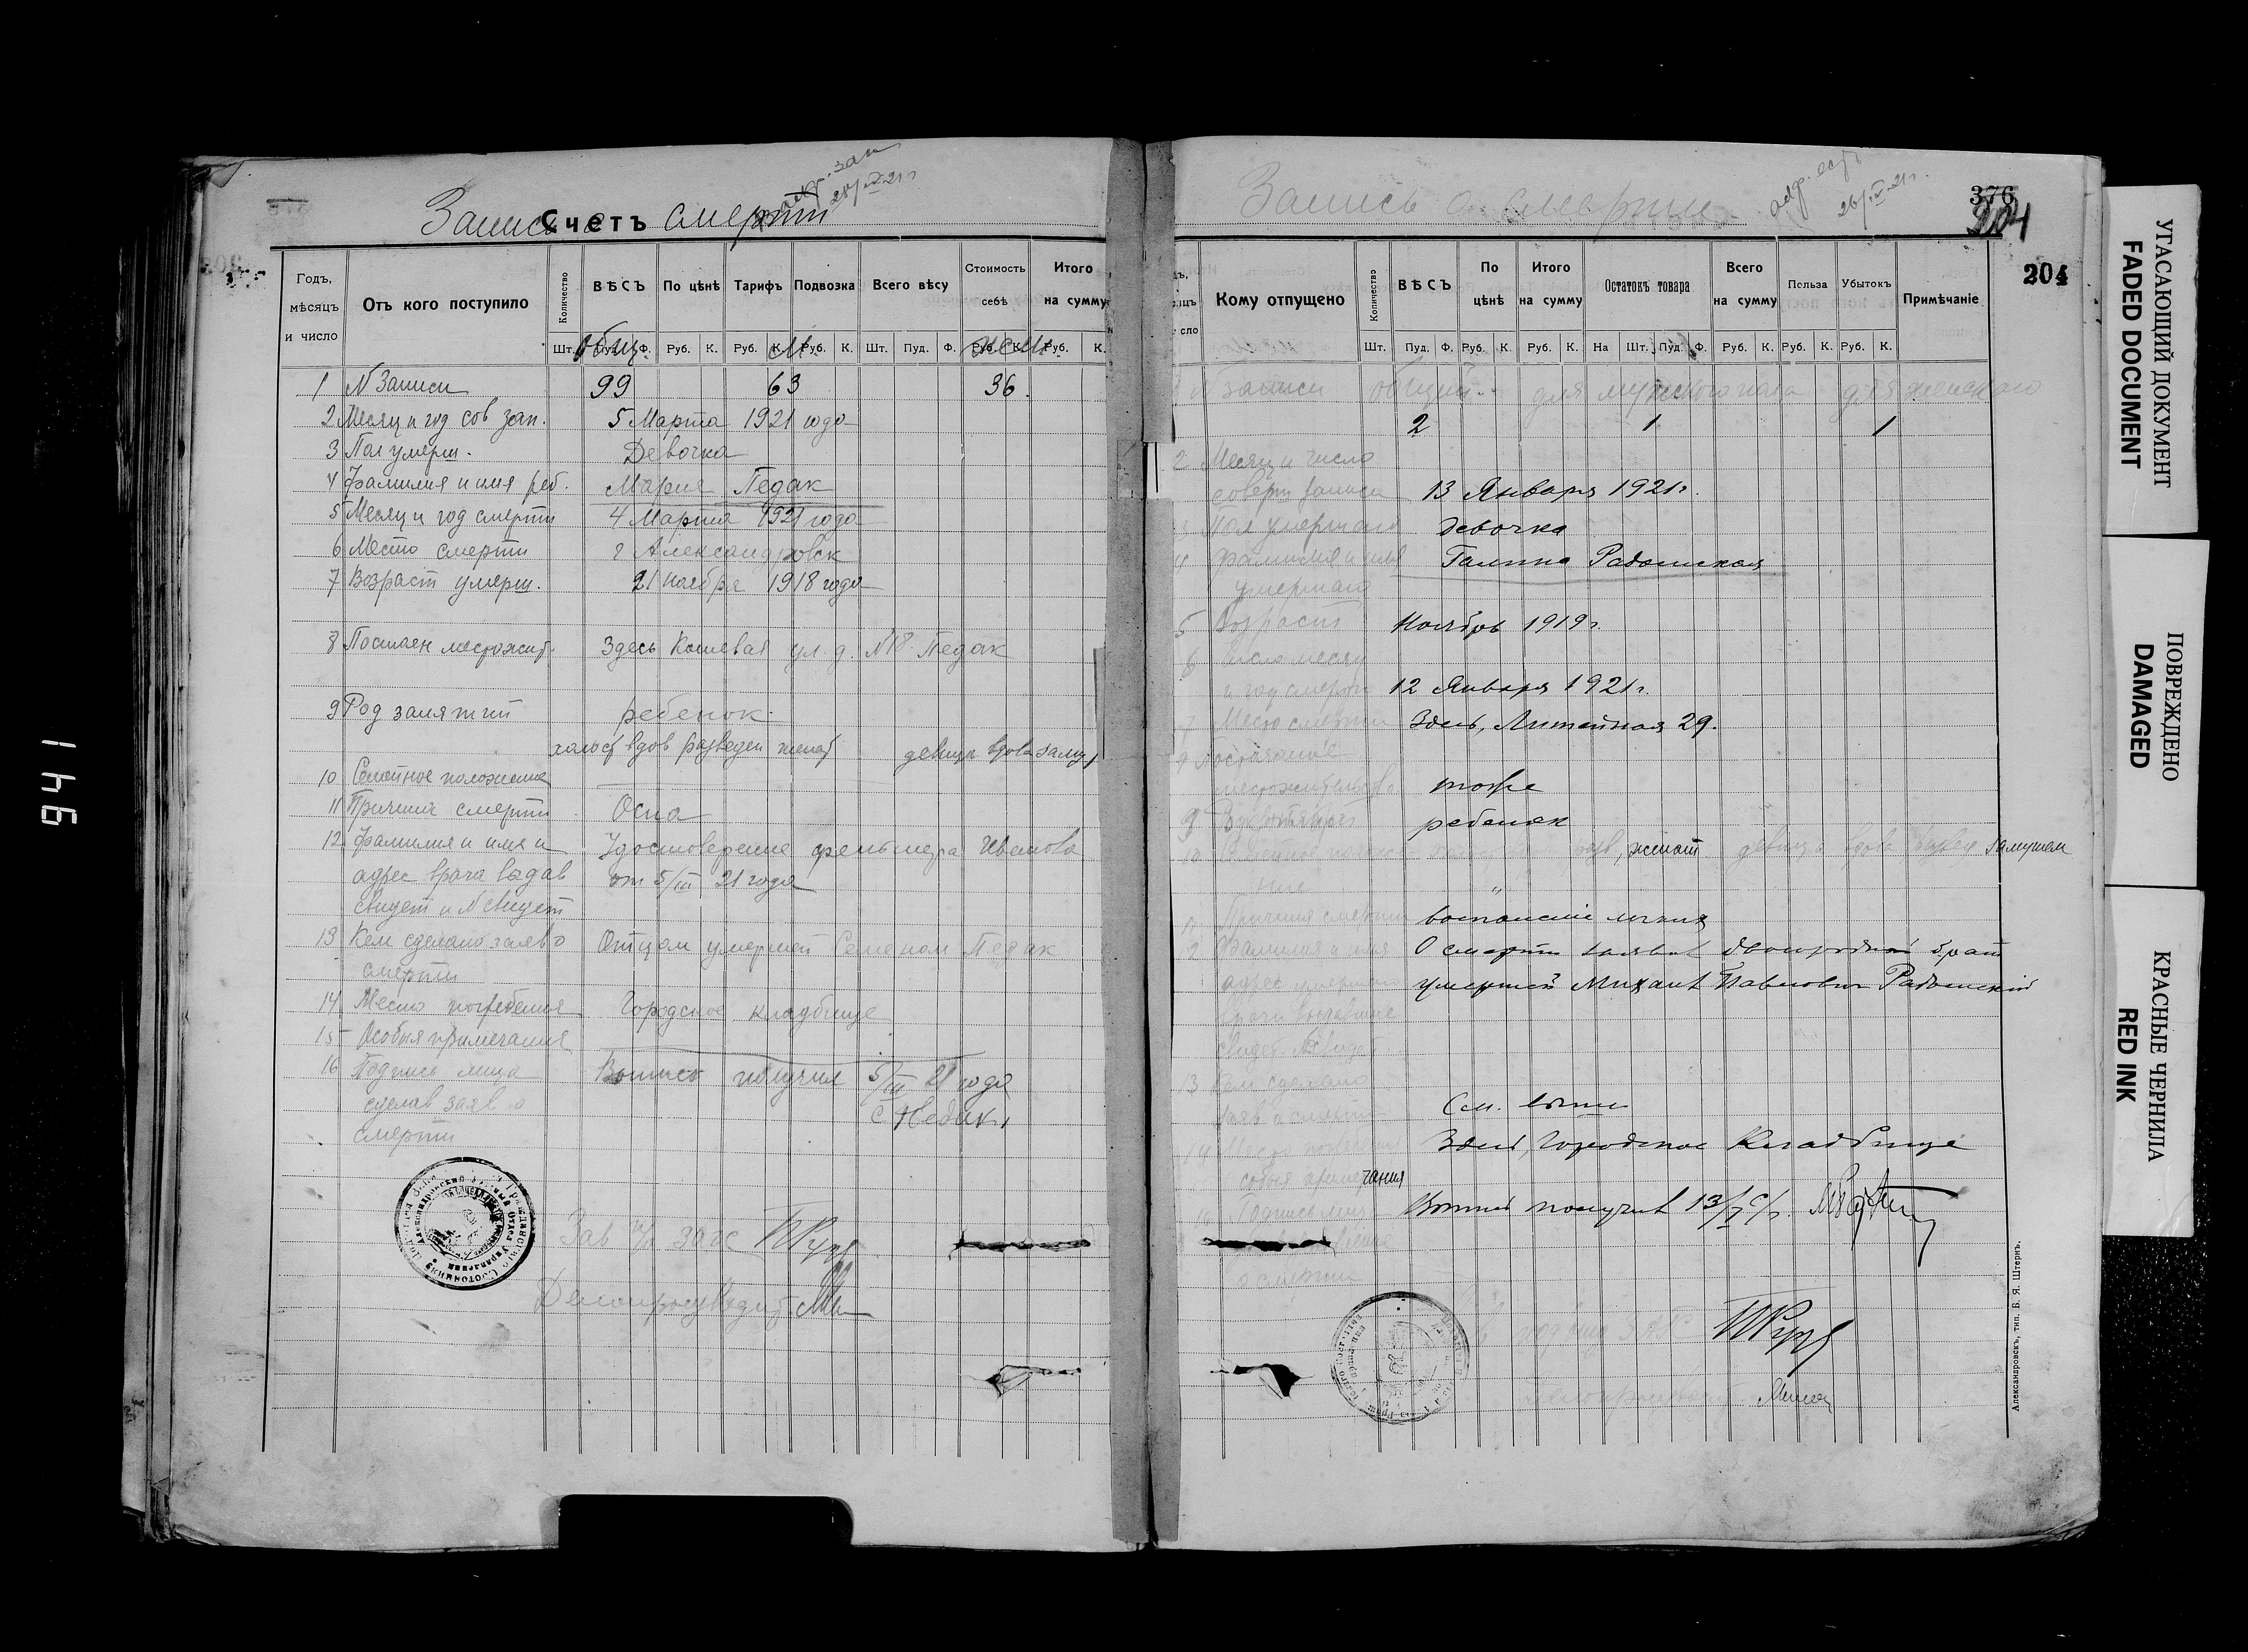 Запись о смерти
Счетъ
алф. зап
26/IV 21 г
Годъ, мѣсяцъ и число
Отъ кого поступило
Количество
ВѢСЪ
По цѣнѣ
Тарифъ
Подвозка
Всего вѣсу
Стоимость себѣ
Итого на сумму
Шт. Пуд. Ф. Руб. К. Руб. К. Руб. К. Шт. Пуд. Ф. Руб. К. Руб. К.
общ. м жен.
1 N Записи 99 63 36.
2 Месяц и год сов зап. 5 Марта 1921 года
3 Пол умерш. Девочка
4 Фамилия и имя реб. Мария Педак
5 Месяц и год смерти 4 Марта 1921 года
6 Место смерти г Александровск
7 Возраст умерш. 21 ноября 1918 года
8 Постоян местожит. Здесь Кошевая ул. д. N18 Педак
9 Род занятий ребенок
холост вдов разведен женат девица вдова замуж
10 Семейное положение
11 Причина смерти Оспа
12 Фамилия и имя и Удостоверение фельшера Иванова
адрес врача выдав от 5/III 21 года
свидет и N свидет
13 Кем сделано заяв о Отцом умершей Семеном Педак
смерти
14 Место погребения Городское кладбище
15 Особыя примечания
16 Подпись лица Выпись получил 5/III 21 года
сделав заяв о С Педак
смерти
Зав п/о загс
Делопроизводит
Запись о смерти
алф. есть
26/IV 21 г.
376
204
204
Кому отпущено
Количество
ВѢСЪ
По цѣнѣ
Итого на сумму
Остатокъ товара
Всего на сумму
Польза
Убытокъ
Примѣчаніе
Шт. Пуд. Ф. Руб. К. Руб. К. На Шт. Пуд. Ф. Руб. К. Руб. К. Руб. К.
1 N записи общий для мужского пола для женского
2 1 1
2 Месяц и число
соверш записи 13 Января 1921 г.
3 Пол умершаго девочка
4 Фамилия и имя Галина Радомская
умершаго
5 Возраст Ноябрь 1919 г.
6 Число месяц
и год смерти 12 Января 1921 г.
7 Место смерти Здесь, Литейная 29.
8 Постоянное
местожительство тоже
9 Род занятий ребенок
10 разв, женат девица вдова развед замужем
ние "
11 Причина смерти воспаление легких
12 Фамилия и имя О смерти заявил двоюродный брат
адрес умершей Михаил Павлович Радомский
врача выдавшие
свидет N свидет
13 Кем сделано
заяв о смерти См. выше
14 Место погребения Здесь, Городское Кладбище
собыя примечания
Подпись лица Выпись получил 13/I с/г.
о смерти
Александровскъ, тип. Б. Я. Штернъ.
УГАСАЮЩИЙ ДОКУМЕНТ
FADED DOCUMENT
ПОВРЕЖДЕНО
DAMAGED
КРАСНЫЕ ЧЕРНИЛА
RED INK
1146